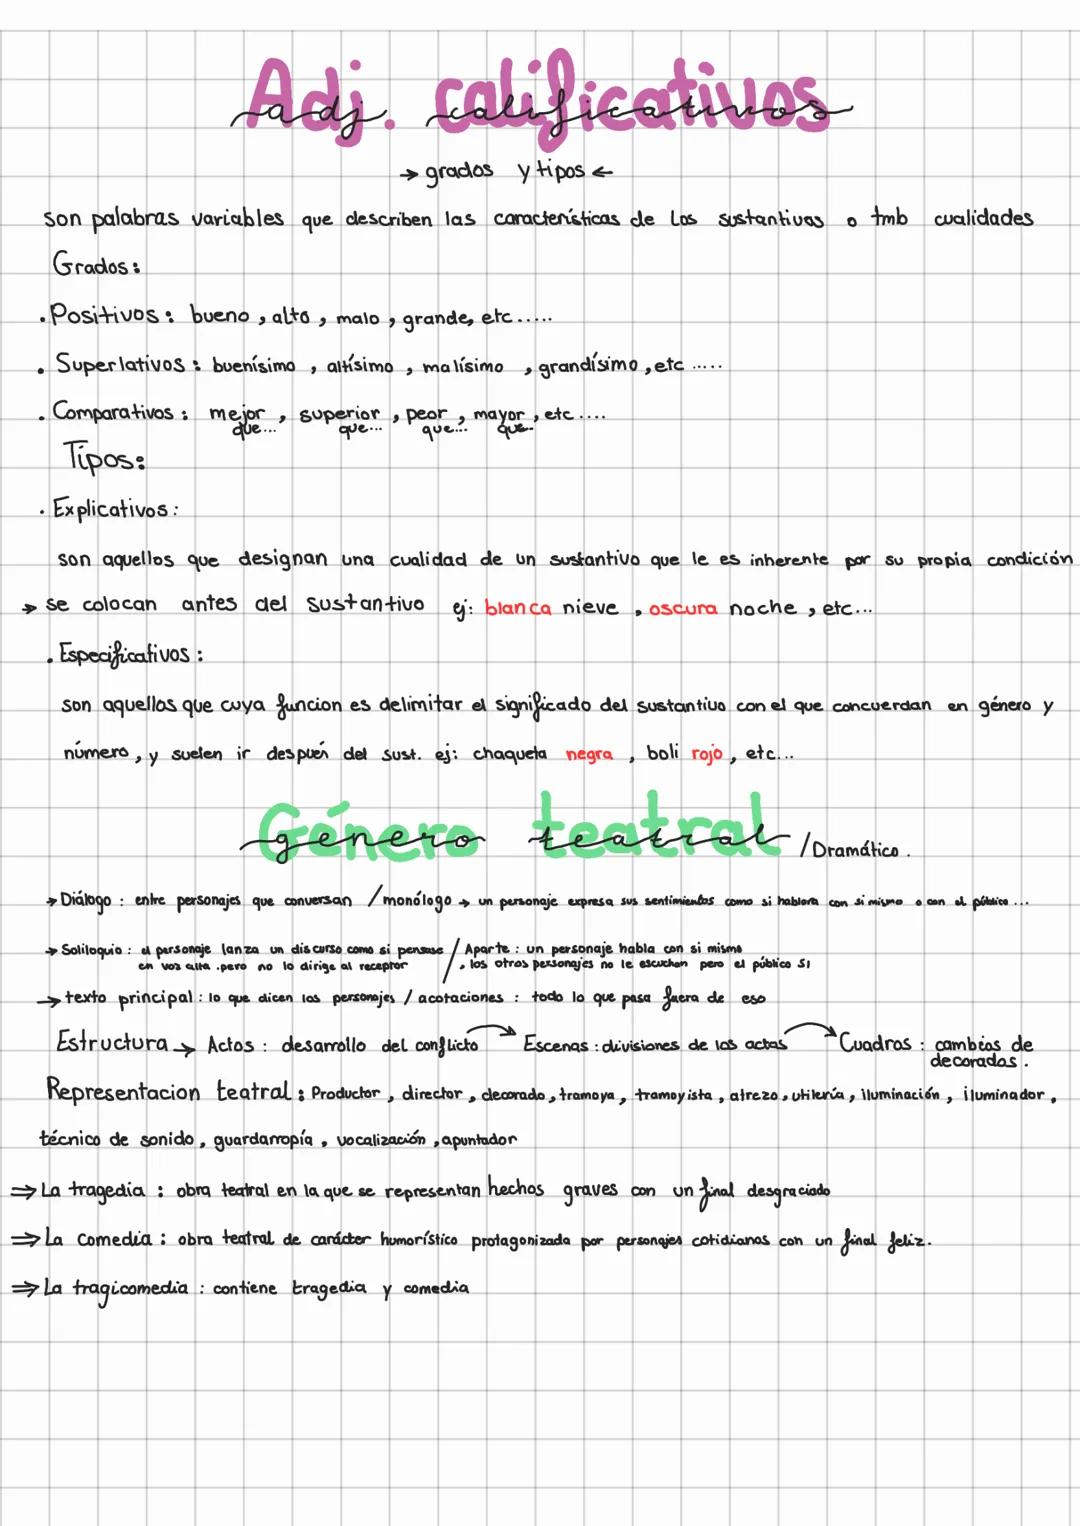 Adj. calificativos
adj. calificativos
→ grados y tipos ←
son palabras variables que describen las características de los sustantivos o tmb cualidades
Grados:
. Positivos: bueno, alto, malo, grande, etc.....
. Superlativos: buenísimo, altísimo, malísimo, grandísimo, etc.....
. Comparativos: mejor, superior, peor, mayor, etc....
que... que... que... que..
Tipos:
. Explicativos:
son aquellos que designan una cualidad de un sustantivo que le es inherente por su propia condición
→ se colocan antes del sustantivo ej: blanca nieve, oscura noche, etc...
. Especificativos:
son aquellos que cuya funcion es delimitar el significado del sustantivo con el que concuerdan en género y
número, y suelen ir después del sust. ej: chaqueta negra, boli rojo, etc...
Género teatral
género teatral /Dramático.
→ Diálogo: entre personajes que conversan / monólogo → un personaje expresa sus sentimientos como si hablara con si mismo o con el público...
→ Soliloquio: el personaje lanza un discurso como si pensase / Aparte: un personaje habla con si mismo
en voz alta .pero no lo dirige al receptor . los otros personajes no le escuchan pero el público SI
→ texto principal: lo que dicen los personajes / acotaciones: todo lo que pasa fuera de eso
Estructura → Actos: desarrollo del conflicto → Escenas: divisiones de los actos → Cuadros: cambios de
decorados.
Representacion teatral: Productor, director, decorado, tramoya, tramoyista, atrezo, utilería, iluminación, iluminador,
técnico de sonido, guardarropía, vocalización, apuntador
⇒ La tragedia: obra teatral en la que se representan hechos graves con un final desgraciado
⇒ La comedia: obra teatral de carácter humorístico protagonizada por personajes cotidianos con un final feliz.
⇒ La tragicomedia: contiene tragedia y comedia